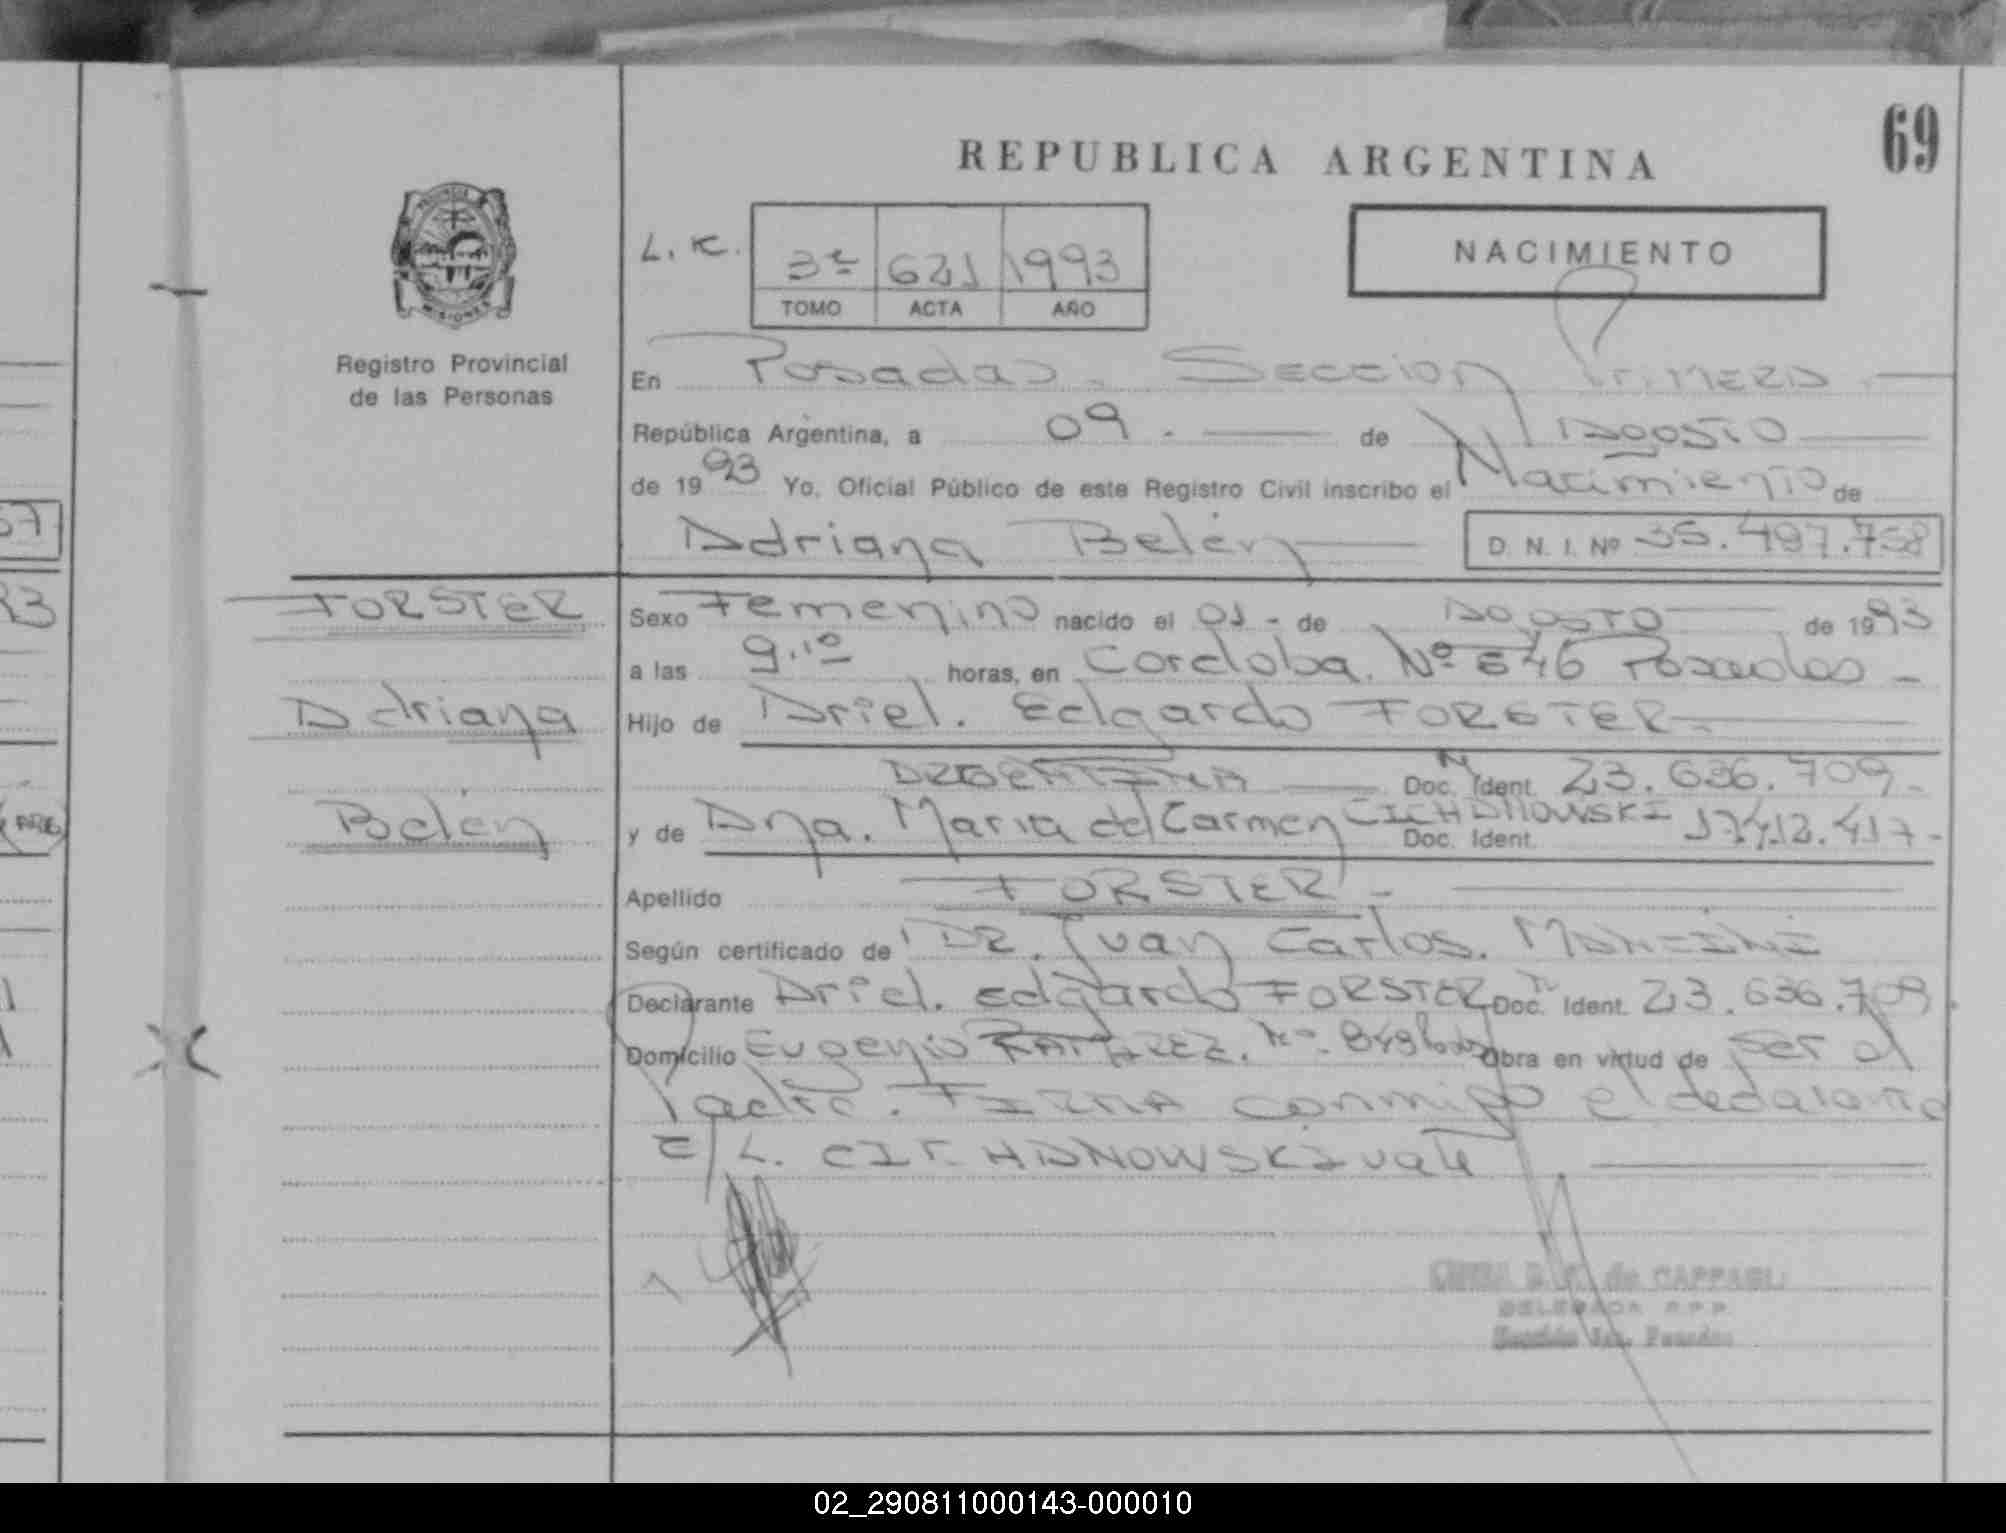 69
REPUBLICA ARGENTINA
L. C.
3º 621 1993
TOMO ACTA AÑO
NACIMIENTO
PROVINCIA
MISIONES
Registro Provincial
de las Personas
En Posadas. Seccion Primera.
República Argentina, a 09. de Agosto
de 1993 Yo, Oficial Público de este Registro Civil inscribo el Nacimiento de
Adriana Belén D. N. I. Nº 35.497.758
FORSTER
Adriana
Belén
Sexo Femenino nacido el 01 - de Agosto de 1993
a las 9.10 horas, en Cordoba. Nº 646 Posadas -
Hijo de Ariel. Edgardo FORSTER.
ARGENTINA Doc. N Ident. 23.636.709.-
y de Dña. Maria del Carmen CICHANOWSKI Doc. Ident. 17.412.417-
Apellido FORSTER -
Según certificado de DR. Juan Carlos.
Declarante Ariel. Edgardo FORSTER Doc. N Ident. 23.636.709.
Domicilio Eugenio RAMIREZ. Nº. Obra en virtud de ser el
Padre. FIRMA conmigo el declarante
E/L. CICHANOWSKI vale
de CAPPAGLI
DELEGADA R.P.P.
Sección 1ra. Posadas
57
93
ARG
02_290811000143-000010